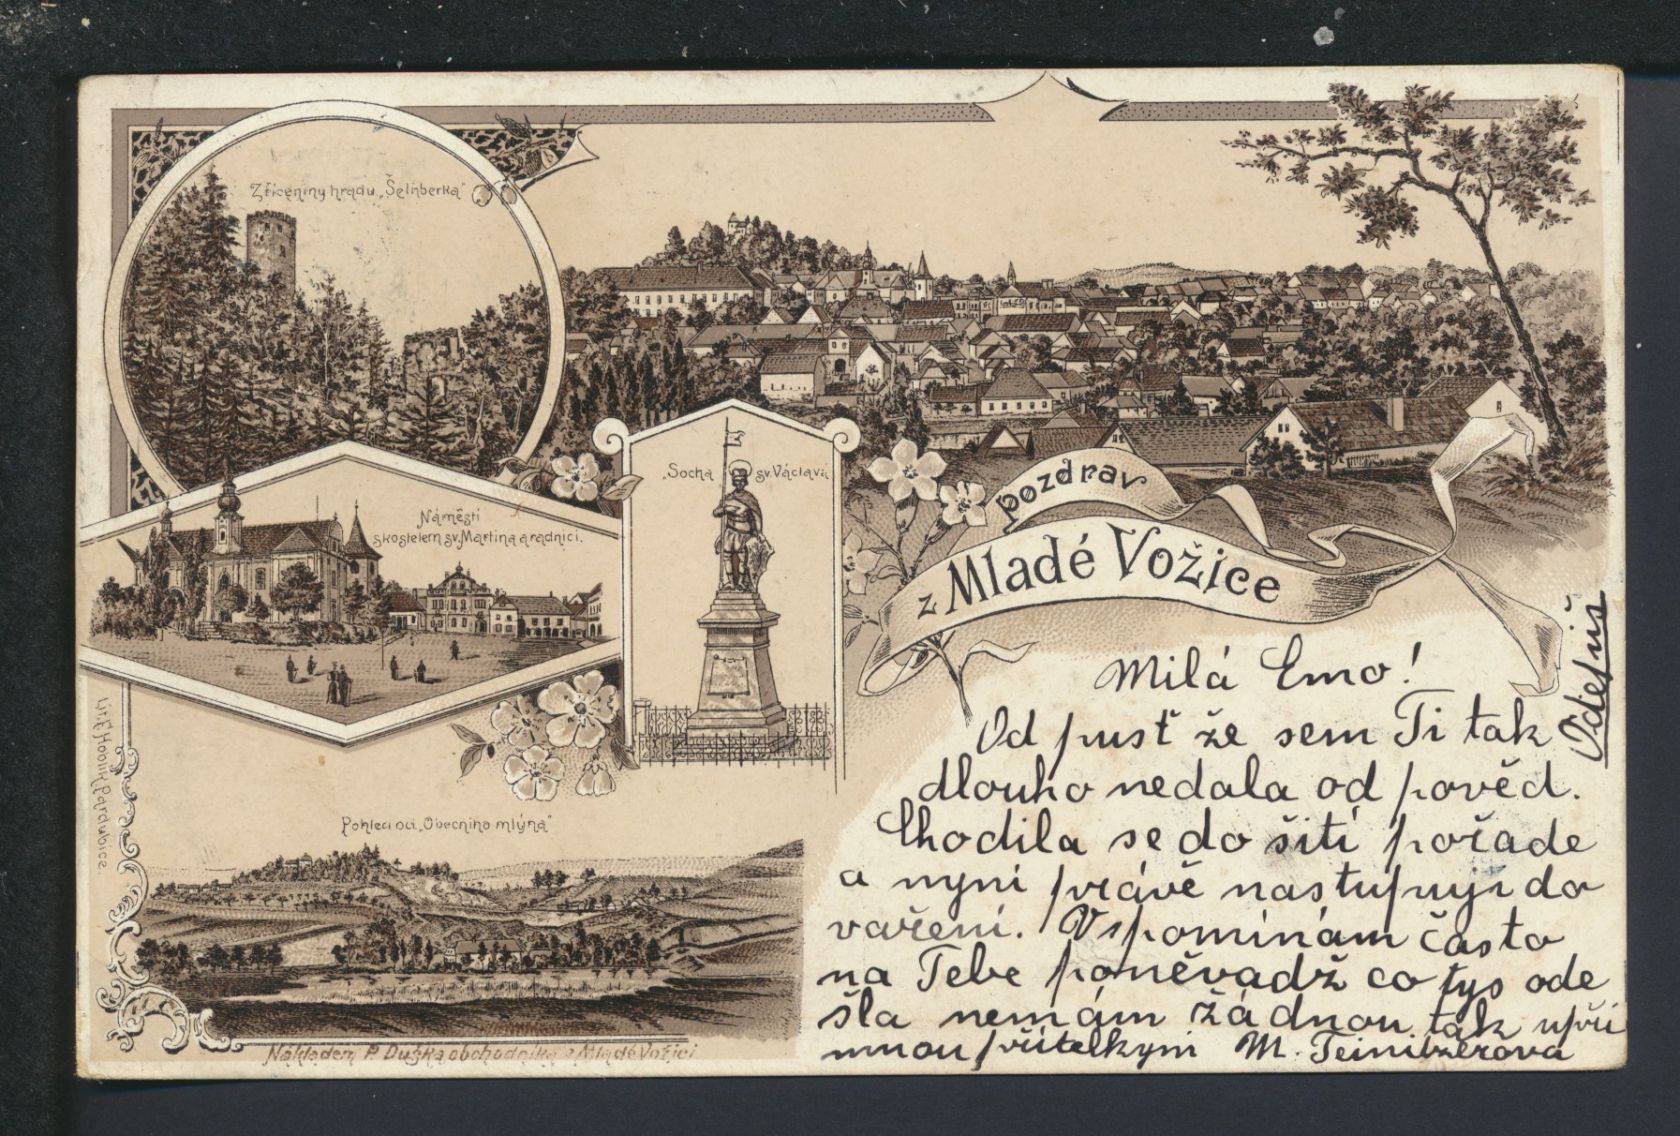 Zříceniny hradu „Šelnberka"
„Socha sv. Václava
Náměstí
s kostelem sv. Martina a radnicí.
pozdrav
z Mladé Vožice
Pohled od „Obecního mlýna"
Nákladem P. Duška obchodníka v Mladé Vožici
Pardubice
Milá Emo!
Od pusť že sem Ti tak
dlouho nedala od pověd.
Chodila se do šití pořade
a nyní právě nastupuji do
vaření. Vspomínám často
na Tebe poněvadž co tys ode
šla nemám žádnou tak upří
mnou přítelkyni M.